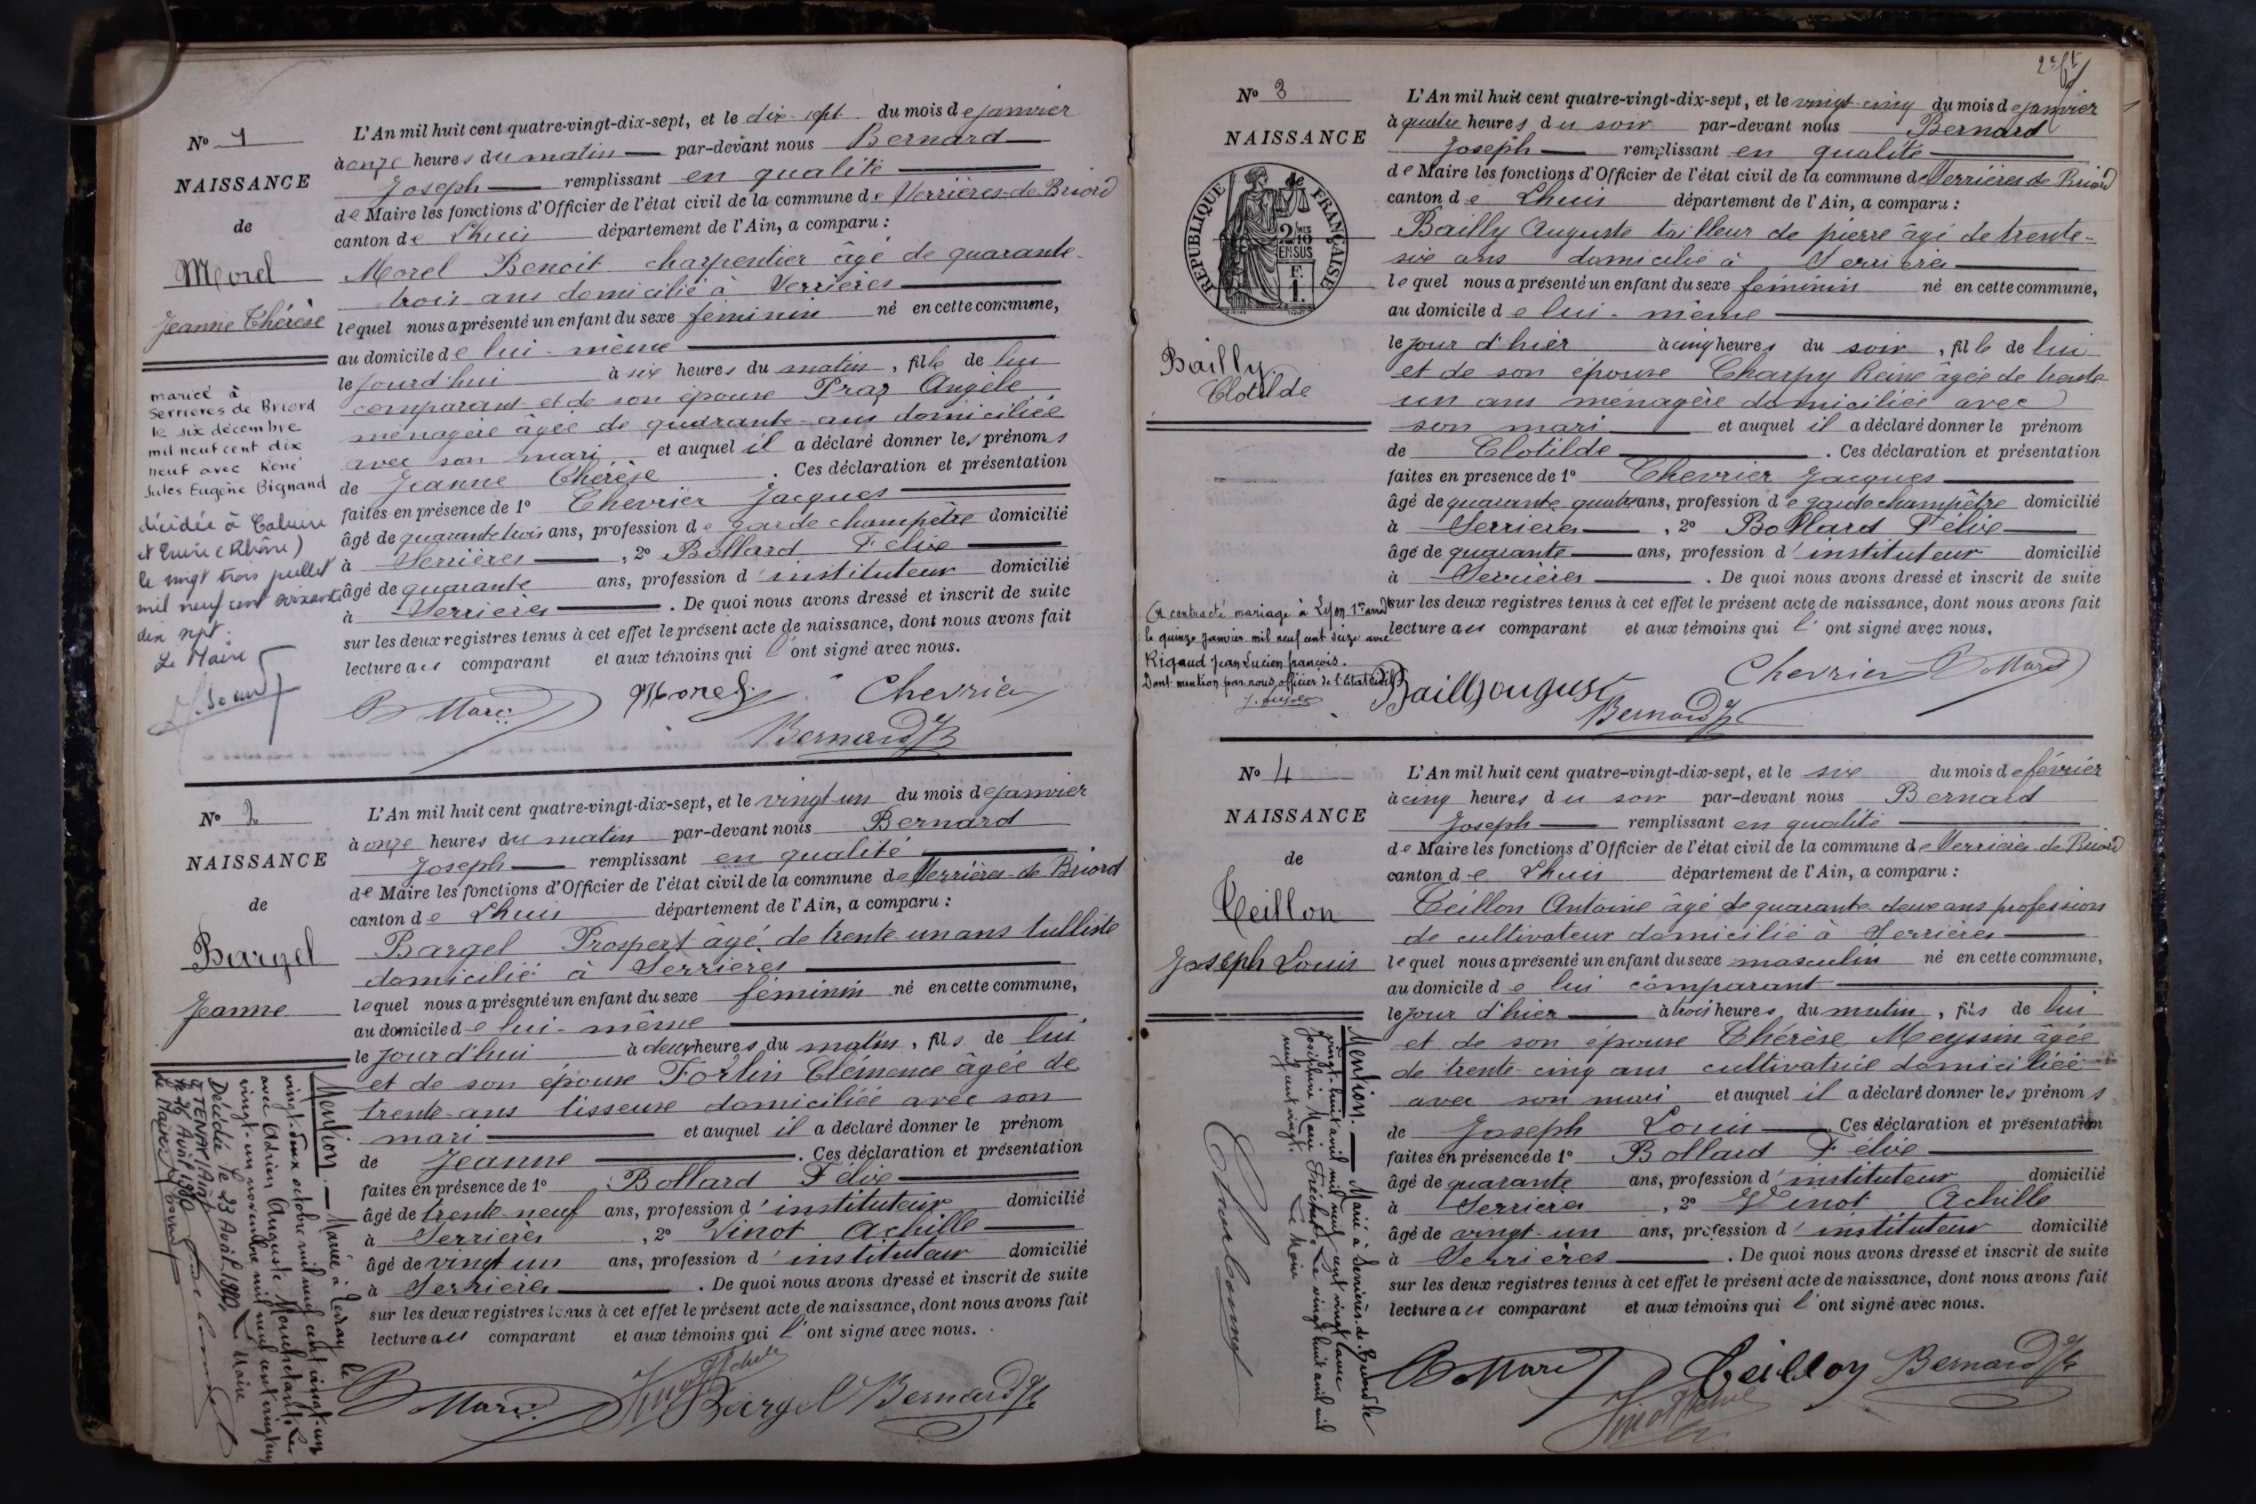 N° 1
NAISSANCE
de
Morel
Jeanne Thérèse
L'An mil huit cent quatre-vingt-dix-sept, et le dix-sept du mois de janvier
à onze heures du matin par-devant nous Bernard
Joseph remplissant en qualité
de Maire les fonctions d'Officier de l'état civil de la commune de Serrières-de-Briord
canton de Lhuis département de l'Ain, a comparu :
Morel Benoit charpentier âgé de quarante-
trois ans domicilié à Serrières
lequel nous a présenté un enfant du sexe féminin né en cette commune,
au domicile de lui-même
le jourd'hui à six heures du matin, fille de lui
comparant et de son épouse Praz Angèle
ménagère âgée de quarante ans domiciliée
avec son mari et auquel il a déclaré donner les prénoms
de Jeanne Thérèse. Ces déclaration et présentation
faites en présence de 1° Chevrier Jacques
âgé de quarante trois ans, profession de garde champêtre domicilié
à Serrières, 2° Bollard Félix
âgé de quarante ans, profession d'instituteur domicilié
à Serrières. De quoi nous avons dressé et inscrit de suite
sur les deux registres tenus à cet effet le présent acte de naissance, dont nous avons fait
lecture au comparant et aux témoins qui l'ont signé avec nous.
Morel Chevrier
Bernard
mariée à
Serrières de Briord
le six décembre
mil neuf cent dix
neuf avec René
Jules Eugène Bignand
décédée à Caluire
et Cuire (Rhône)
le vingt trois juillet
mil neuf cent soixante
dix sept.
Le Maire
N° 2
NAISSANCE
de
Bargel
Jeanne
L'An mil huit cent quatre-vingt-dix-sept, et le vingt un du mois de janvier
à onze heures du matin par-devant nous Bernard
Joseph remplissant en qualité
de Maire les fonctions d'Officier de l'état civil de la commune de Serrières-de-Briord
canton de Lhuis département de l'Ain, a comparu :
Bargel Prosper âgé de trente un ans tulliste
domicilié à Serrières
lequel nous a présenté un enfant du sexe féminin né en cette commune,
au domicile de lui-même
le jourd'hui à deux heures du matin, fils de lui
et de son épouse Fortin Clémence âgée de
trente ans tisseuse domiciliée avec son
mari et auquel il a déclaré donner le prénom
de Jeanne. Ces déclaration et présentation
faites en présence de 1° Bollard Félix
âgé de trente-neuf ans, profession d'instituteur domicilié
à Serrières, 2° Vinot Achille
âgé de vingt un ans, profession d'instituteur domicilié
à Serrières. De quoi nous avons dressé et inscrit de suite
sur les deux registres tenus à cet effet le présent acte de naissance, dont nous avons fait
lecture au comparant et aux témoins qui l'ont signé avec nous.
Bargel Bernard
Mention. Mariée à le
vingt-deux octobre mil neuf cent vingt-un
avec Adrien Auguste
vingt-un novembre mil neuf cent vingt un
Le Maire
Décédée le 23 Avril 1980
à
le 26 Avril 1980
Le Maire
N° 3
NAISSANCE
de
RÉPUBLIQUE FRANÇAISE
Bailly
Clotilde
L'An mil huit cent quatre-vingt-dix-sept, et le vingt-cinq du mois de janvier
à quatre heures du soir par-devant nous Bernard
Joseph remplissant en qualité
de Maire les fonctions d'Officier de l'état civil de la commune de Serrières de Briord
canton de Lhuis département de l'Ain, a comparu :
Bailly Auguste tailleur de pierre âgé de trente-
six ans domicilié à Serrières
lequel nous a présenté un enfant du sexe féminin né en cette commune,
au domicile de lui-même
le jour d'hier à cinq heures du soir, fille de lui
et de son épouse Charpy Reine âgée de trente-
un ans ménagère domiciliée avec
son mari et auquel il a déclaré donner le prénom
de Clotilde. Ces déclaration et présentation
faites en présence de 1° Chevrier Jacques
âgé de quarante quatre ans, profession de garde champêtre domicilié
à Serrières, 2° Bollard Félix
âgé de quarante ans, profession d'instituteur domicilié
à Serrières. De quoi nous avons dressé et inscrit de suite
sur les deux registres tenus à cet effet le présent acte de naissance, dont nous avons fait
lecture au comparant et aux témoins qui l'ont signé avec nous.
A contracté mariage à Lyon 1er arrdt
le quinze janvier mil neuf cent seize avec
Rigaud Jean Lucien François.
Dont mention par nous, officier de l'état civil
Bailly auguste Chevrier
Bernard
N° 4
NAISSANCE
de
Teillon
Joseph Louis
L'An mil huit cent quatre-vingt-dix-sept, et le six du mois de février
à cinq heures du soir par-devant nous Bernard
Joseph remplissant en qualité
de Maire les fonctions d'Officier de l'état civil de la commune de Serrières de Briord
canton de Lhuis département de l'Ain, a comparu :
Teillon Antoine âgé de quarante-deux ans profession
de cultivateur domicilié à Serrières
lequel nous a présenté un enfant du sexe masculin né en cette commune,
au domicile de lui comparant
le jour d'hier à trois heures du matin, fils de lui
et de son épouse Thérèse Meyssin âgée
de trente-cinq ans cultivatrice domiciliée
avec son mari et auquel il a déclaré donner les prénoms
de Joseph Louis. Ces déclaration et présentation
faites en présence de 1° Bollard Félix
âgé de quarante ans, profession d'instituteur domicilié
à Serrières, 2° Vinot Achille
âgé de vingt-un ans, profession d'instituteur domicilié
à Serrières. De quoi nous avons dressé et inscrit de suite
sur les deux registres tenus à cet effet le présent acte de naissance, dont nous avons fait
lecture au comparant et aux témoins qui l'ont signé avec nous.
Teillon Bernard
Mention. Marié à Serrières-de-Briord le
vingt-huit avril mil neuf cent vingt avec
Joséphine Marie Le vingt huit avril mil
neuf cent vingt.
Le Maire